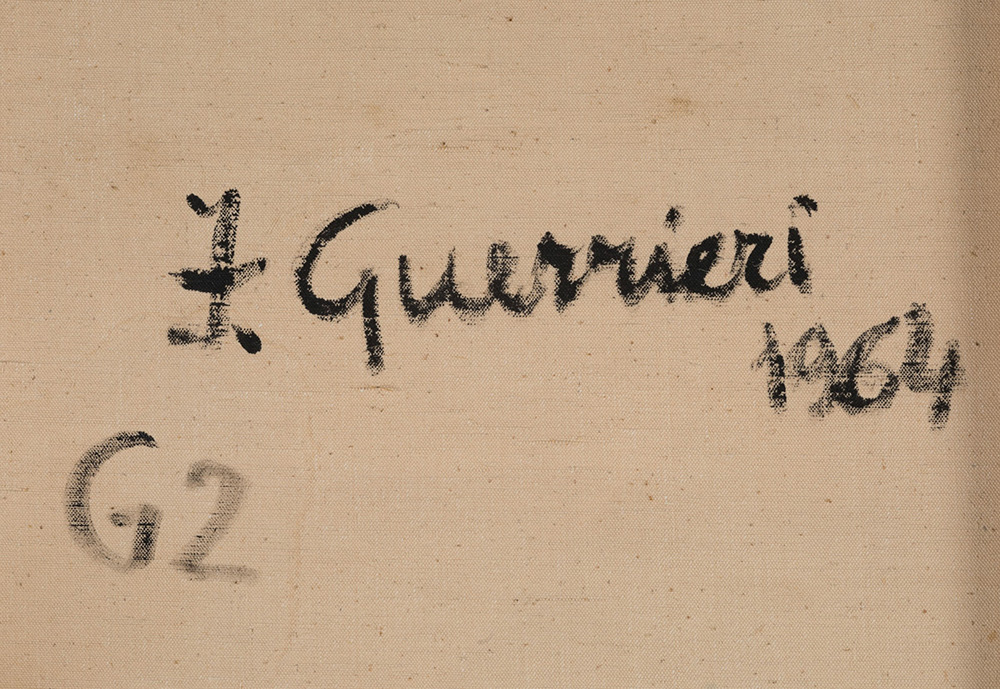 F. Guerrieri
1964
G2